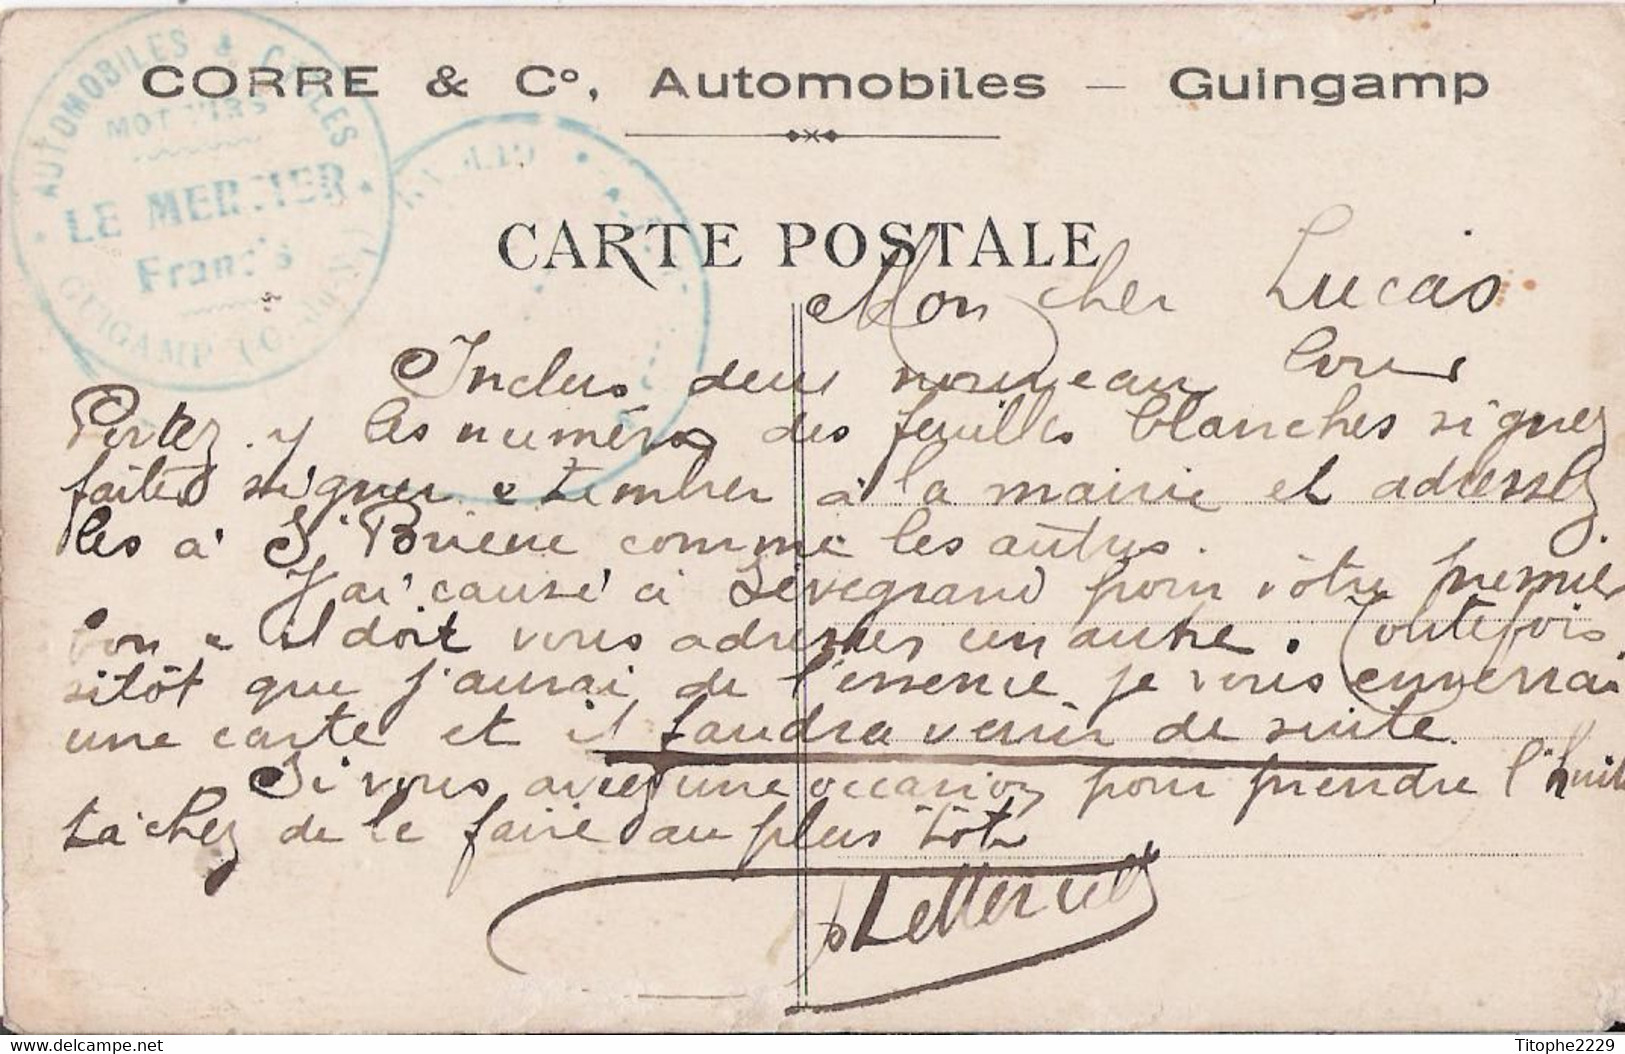 AUTOMOBILES & CYCLES
MOTEURS
LE MERCIER
Francis
GUIGAMP (C. du N.)
CORRE & Cº, Automobiles — Guingamp
CARTE POSTALE
Mon cher Lucas
Inclus deux nouveau
Portez-y les numéros des feuilles blanches signez
faites signer e timbrer à la mairie et adressez
les à St Brieuc comme les autres.
J'ai causé à Levegrand pour vôtre premier
bon e il doit vous adresser un autre. Toutefois
sitôt que j'aurai de l'essence je vous enverrai
une carte et il faudra venir de suite.
Si vous avez une occasion pour prendre l'huile
tâchez de le faire au plus tôt
delcampe.net
Titophe2229